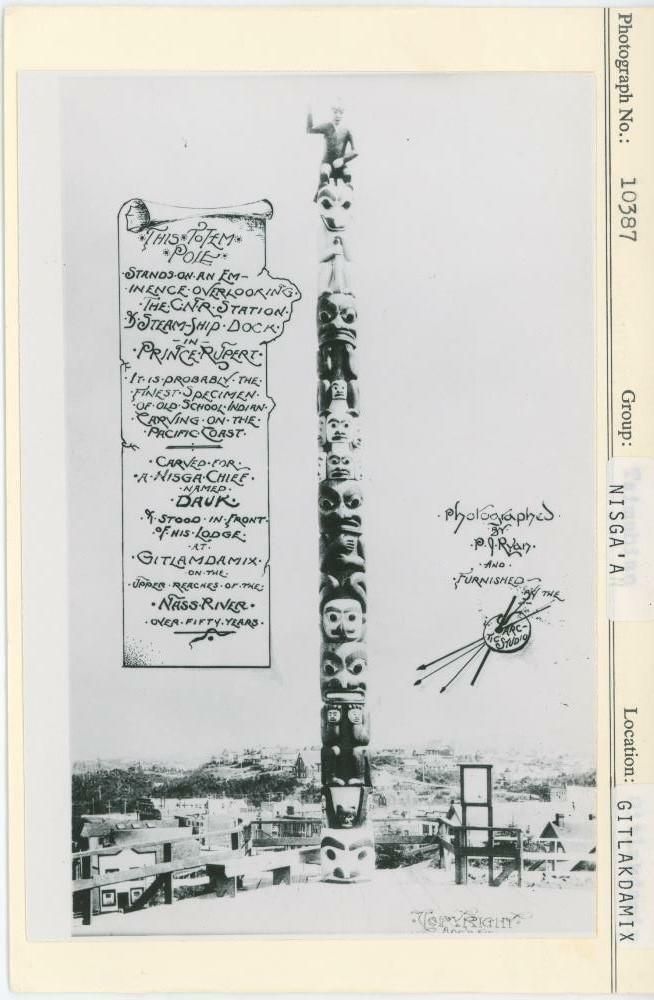 ·THIS·TOTEM·
·POLE·
·STANDS·ON·AN EM-
INENCE·OVERLOOKING·
·THE·G·N·R·STATION·
& STEAM-SHIP·DOCK·
-IN-
·PRINCE·RUPERT·
·IT·IS·PROBABLY·THE·
·FINEST·SPECIMEN·
·OF·OLD·SCHOOL·INDIAN·
·CARVING·ON·THE·
·PACIFIC·COAST·
·CARVED·FOR·
·A·NISGA·CHIEF·
·NAMED·
·DAUK·
·& STOOD·IN·FRONT·
·OF·HIS·LODGE·
·AT·
·GITLAMDAMIX·
·ON·THE·
·UPPER·REACHES·OF·THE·
·NASS·RIVER·
·OVER·FIFTY·YEARS·
·Photographed·
BY
·P.J.RYAN·
·AND·
·FURNISHED·
·BY THE
ARC-
TIC·STUDIO
COPYRIGHT
Photograph No.: 10387
Group: NISGA'A
Location: GITLAKDAMIX